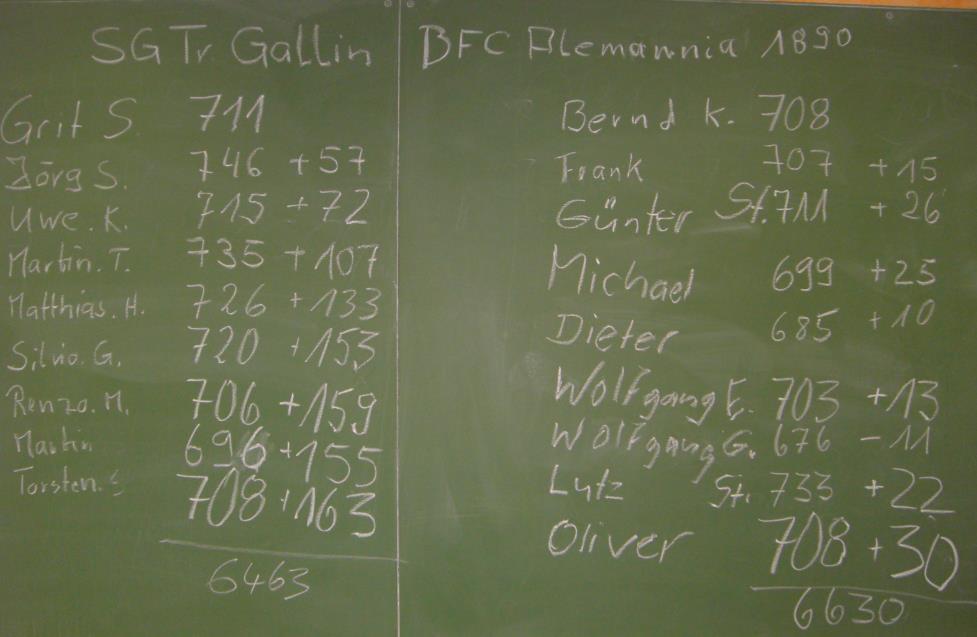 SG Tr. Gallin
Grit S. 711
Jörg S. 746 +57
Uwe. K. 715 +72
Martin. T. 735 +107
Matthias. H. 726 +133
Silvio. G. 720 +153
Renzo. M. 706 +159
Martin 696 +155
Torsten. S 708 +163
6463
BFC Alemannia 1890
Bernd K. 708
Frank 707 +15
Günter St. 711 +26
Michael 699 +25
Dieter 685 +10
Wolfgang E. 703 +13
Wolfgang G. 676 -11
Lutz St. 733 +22
Oliver 708 +30
6630